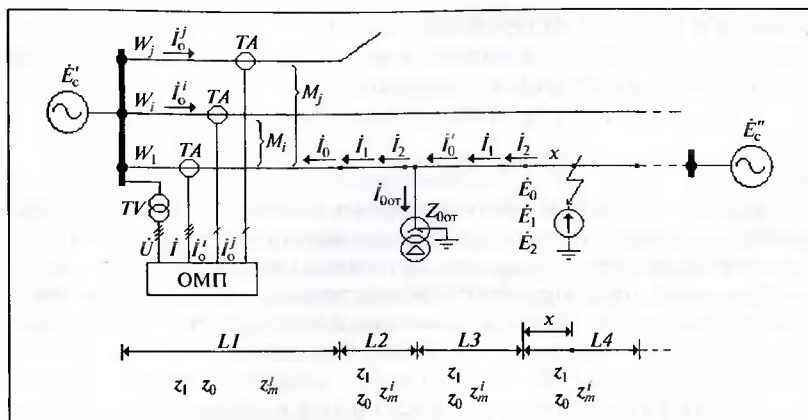 W_j İ_o^j TA
Ė_c' W_i İ_o^i TA } M_j
} M_i
W_1 TA İ_0 İ_1 İ_2 İ_0' İ_1 İ_2 x Ė_c''
TV İ_0от Z_0от Ė_0
Ė_1
U̇ İ İ_o^i İ_o^j Ė_2
ОМП
x
L1 L2 L3 L4
z_1 z_0 z_m^j z_1 z_0 z_m^i z_1 z_0 z_m^i z_1 z_0 z_m^i